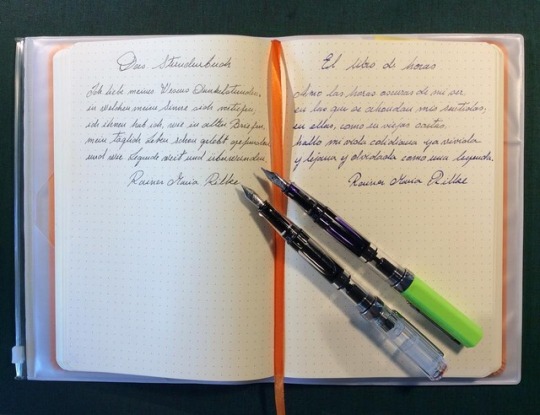 Das Stundenbuch
Ich liebe meines Wesens Dunkelstunden,
in welchen meine Sinne sich vertiefen;
ich ihnen hab ich, wie in alten Briefen,
mein täglich Leben schon gelebt gefunden
und wie Legende weit und überwunden
Rainer Maria Rilke
El libro de horas
Amo las horas oscuras de mi ser
en las que se ahondan mis sentidos;
en ellas, como en viejas cartas,
hallo mi vida cotidiana ya vivida
y lejana y olvidada como una leyenda.
Rainer Maria Rilke